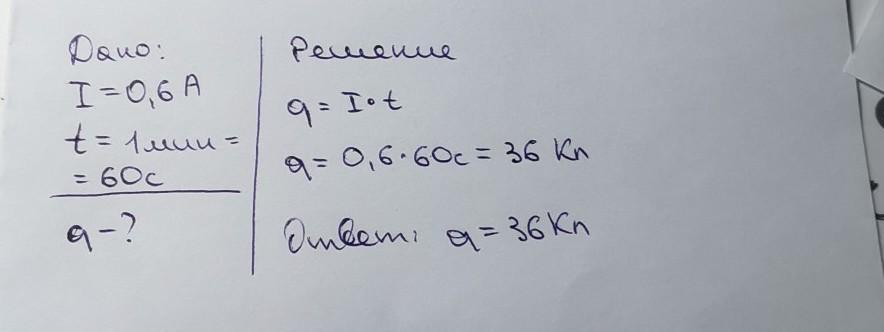 Дано:
I = 0,6 А
t = 1 мин =
= 60с
q - ?
Решение
q = I • t
q = 0,6 • 60с = 36 Кл
Ответ: q = 36 Кл